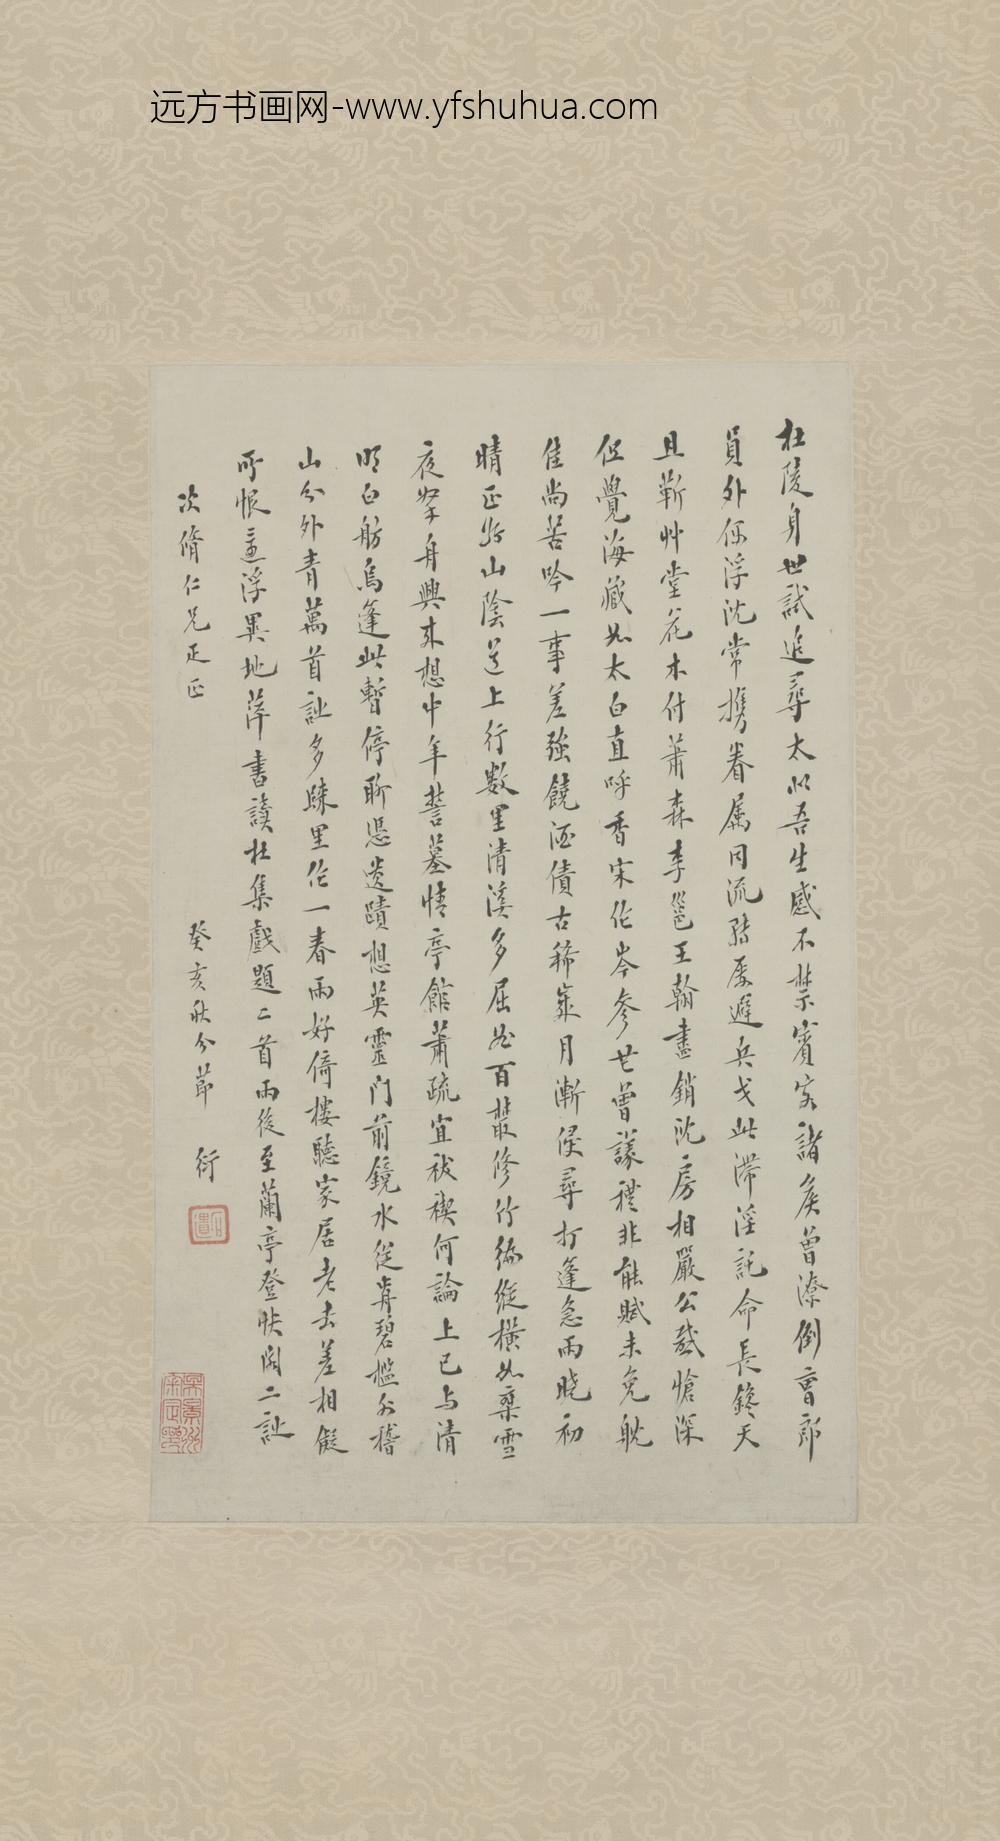 远方书画网-www.yfshuhua.com
杜陵身世試追尋太似吾生感不禁賓客諸侯曾潦倒曹郎
員外仍浮沈常攜眷屬同流殍屢避兵戈此滯淫託命長鑱天
且靳艸堂花木付蕭森李邕王翰盡銷沈房相嚴公感愴深
但覺海藏如太白直呼香宋作岑參甘曾議禮非能賦未免耽
佳尚苦吟一事差強饒酒債古稀歲月漸侵尋打篷急雨曉初
晴正指山陰道上行數里清溪多屈曲百叢修竹編縱橫如乘雪
夜拏舟興來想中年誓墓情亭館蕭疏宜祓禊何論上巳与清
明白舫烏篷此暫停聊憑遺蹟想英靈門前鏡水從前碧檻外稽
山分外青萬首詩多踈里作一春雨好倚樓聽家居老去差相儗
所恨浮異地萍書讀杜集戲題二首雨後至蘭亭登快閣二詩
次脩仁兄正
癸亥秋分節 衍
石遺